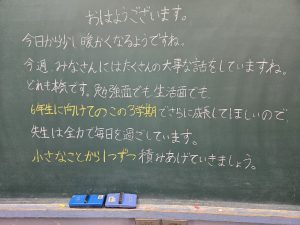 おはようございます。
今日から少し暖かくなるようですね。
今週、みなさんにはたくさんの大事な話をしていますね。
どれも本気です。勉強面でも生活面でも
6年生に向けてのこの3学期でさらに成長してほしいので、
先生は全力で毎日を過ごしています。
小さなことから1つずつ積みあげていきましょう。